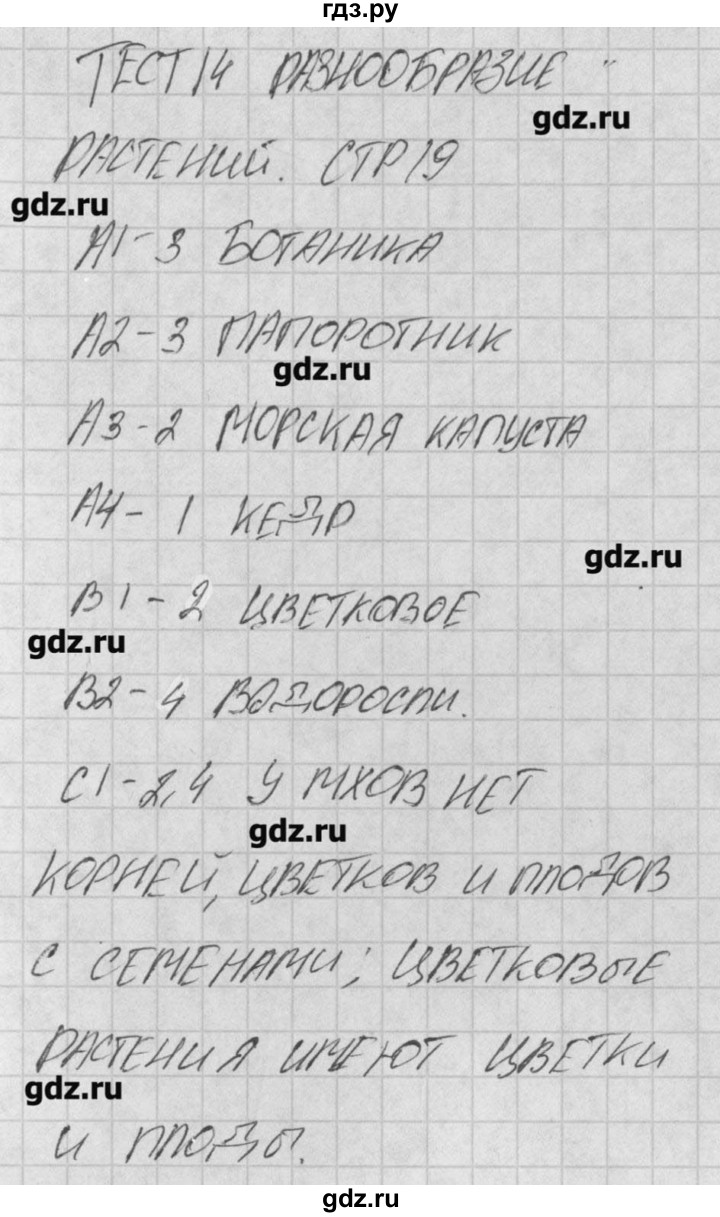 гдз.ру
ТЕСТ 14 РАЗНООБРАЗИЕ
gdz.ru
РАСТЕНИЙ. СТР 19
gdz.ru
А1-3 БОТАНИКА
А2-3 ПАПОРОТНИК
gdz.ru
А3-2 МОРСКАЯ КАПУСТА
А4-1 КЕДР
gdz.ru
В1-2 ЦВЕТКОВОЕ
gdz.ru
В2-4 ВОДОРОСЛИ.
С1-2,4 У МХОВ НЕТ
gdz.ru
КОРНЕЙ, ЦВЕТКОВ И ПЛОДОВ
С СЕМЕНАМИ; ЦВЕТКОВЫЕ
РАСТЕНИЯ ИМЕЮТ ЦВЕТКИ
gdz.ru
И ПЛОДЫ.
gdz.ru